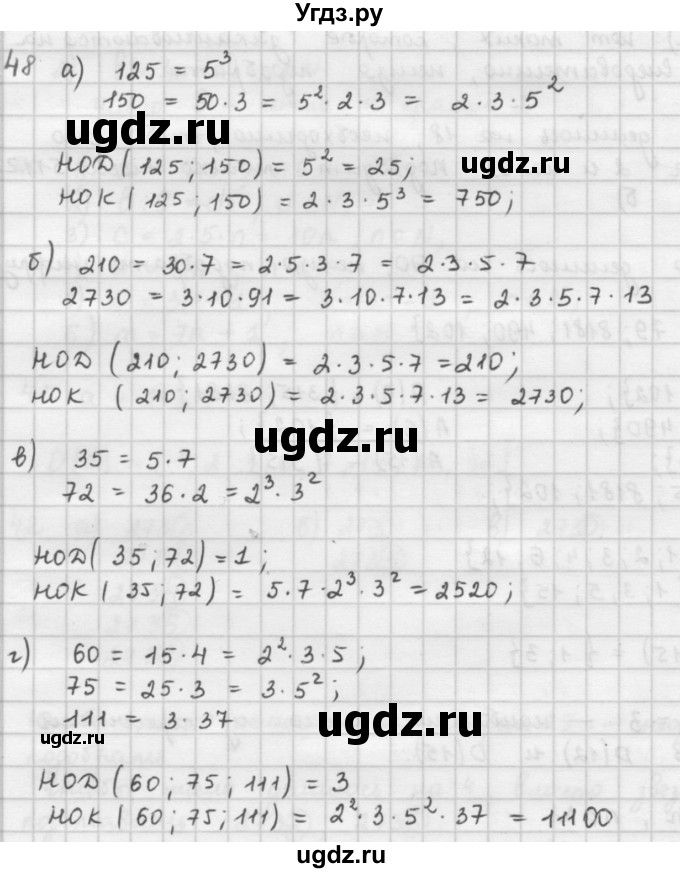 Угдз.ру
48 а) 125 = 5³
150 = 50·3 = 5²·2·3 = 2·3·5²
ugdz.ru
ugdz.ru
НОД (125; 150) = 5² = 25;
НОК (125; 150) = 2·3·5³ = 750;
ugdz.ru
б) 210 = 30·7 = 2·5·3·7 = 2·3·5·7
2730 = 3·10·91 = 3·10·7·13 = 2·3·5·7·13
НОД (210; 2730) = 2·3·5·7 = 210;
НОК (210; 2730) = 2·3·5·7·13 = 2730;
ugdz.ru
в) 35 = 5·7
72 = 36·2 = 2³·3²
ugdz.ru
НОД (35; 72) = 1;
НОК (35; 72) = 5·7·2³·3² = 2520;
г) 60 = 15·4 = 2²·3·5;
75 = 25·3 = 3·5²;
ugdz.ru
111 = 3·37
ugdz.ru
НОД (60; 75; 111) = 3
НОК (60; 75; 111) = 2²·3·5²·37 = 11100
ugdz.ru